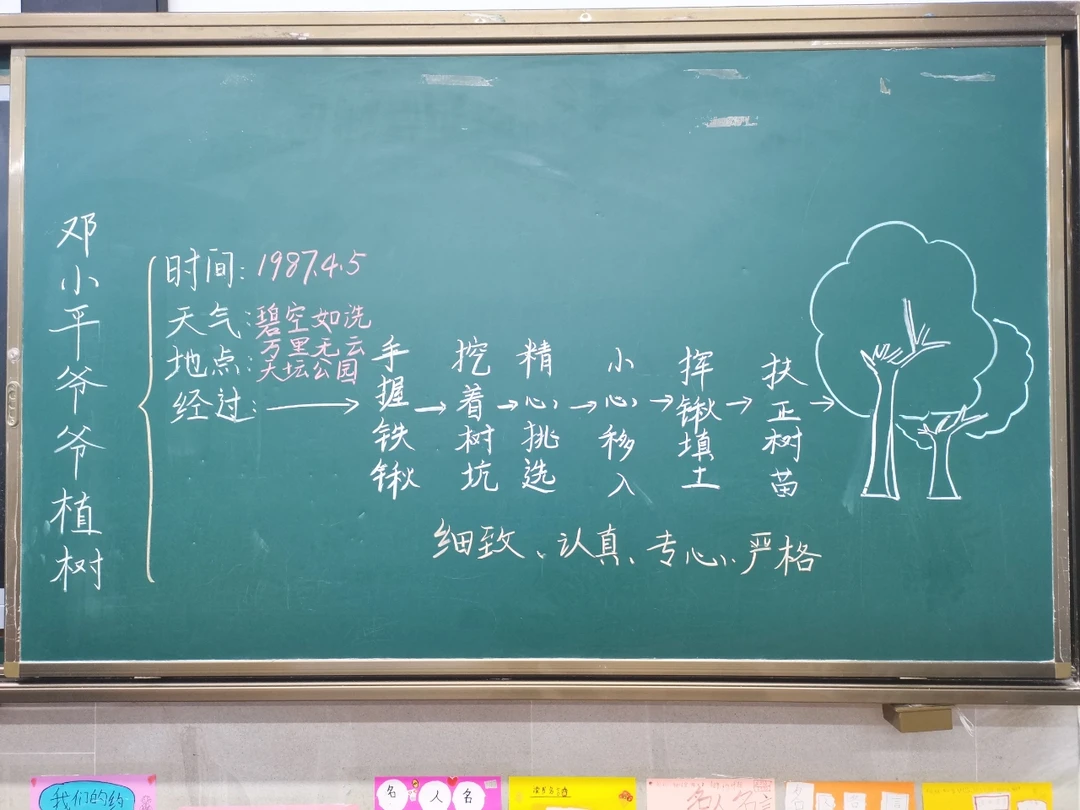 邓小平爷爷植树
时间：1987.4.5
天气：碧空如洗
万里无云
地点：天坛公园
经过：
手握铁锹
挖着树坑
精心挑选
小心移入
挥锹填土
扶正树苗
细致、认真、专心、严格
我们的约
名 人 名
名人名言